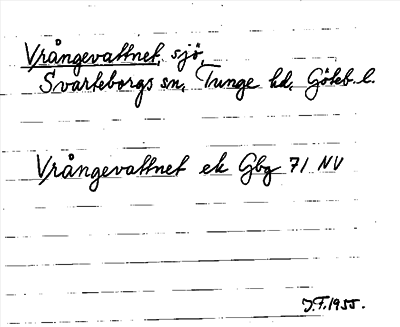 Vrångevattnet, sjö,
Svarteborgs sn, Tunge hd, Göteb. l.
Vrångevattnet ek Gbg 71 NV
J.F. 1955.